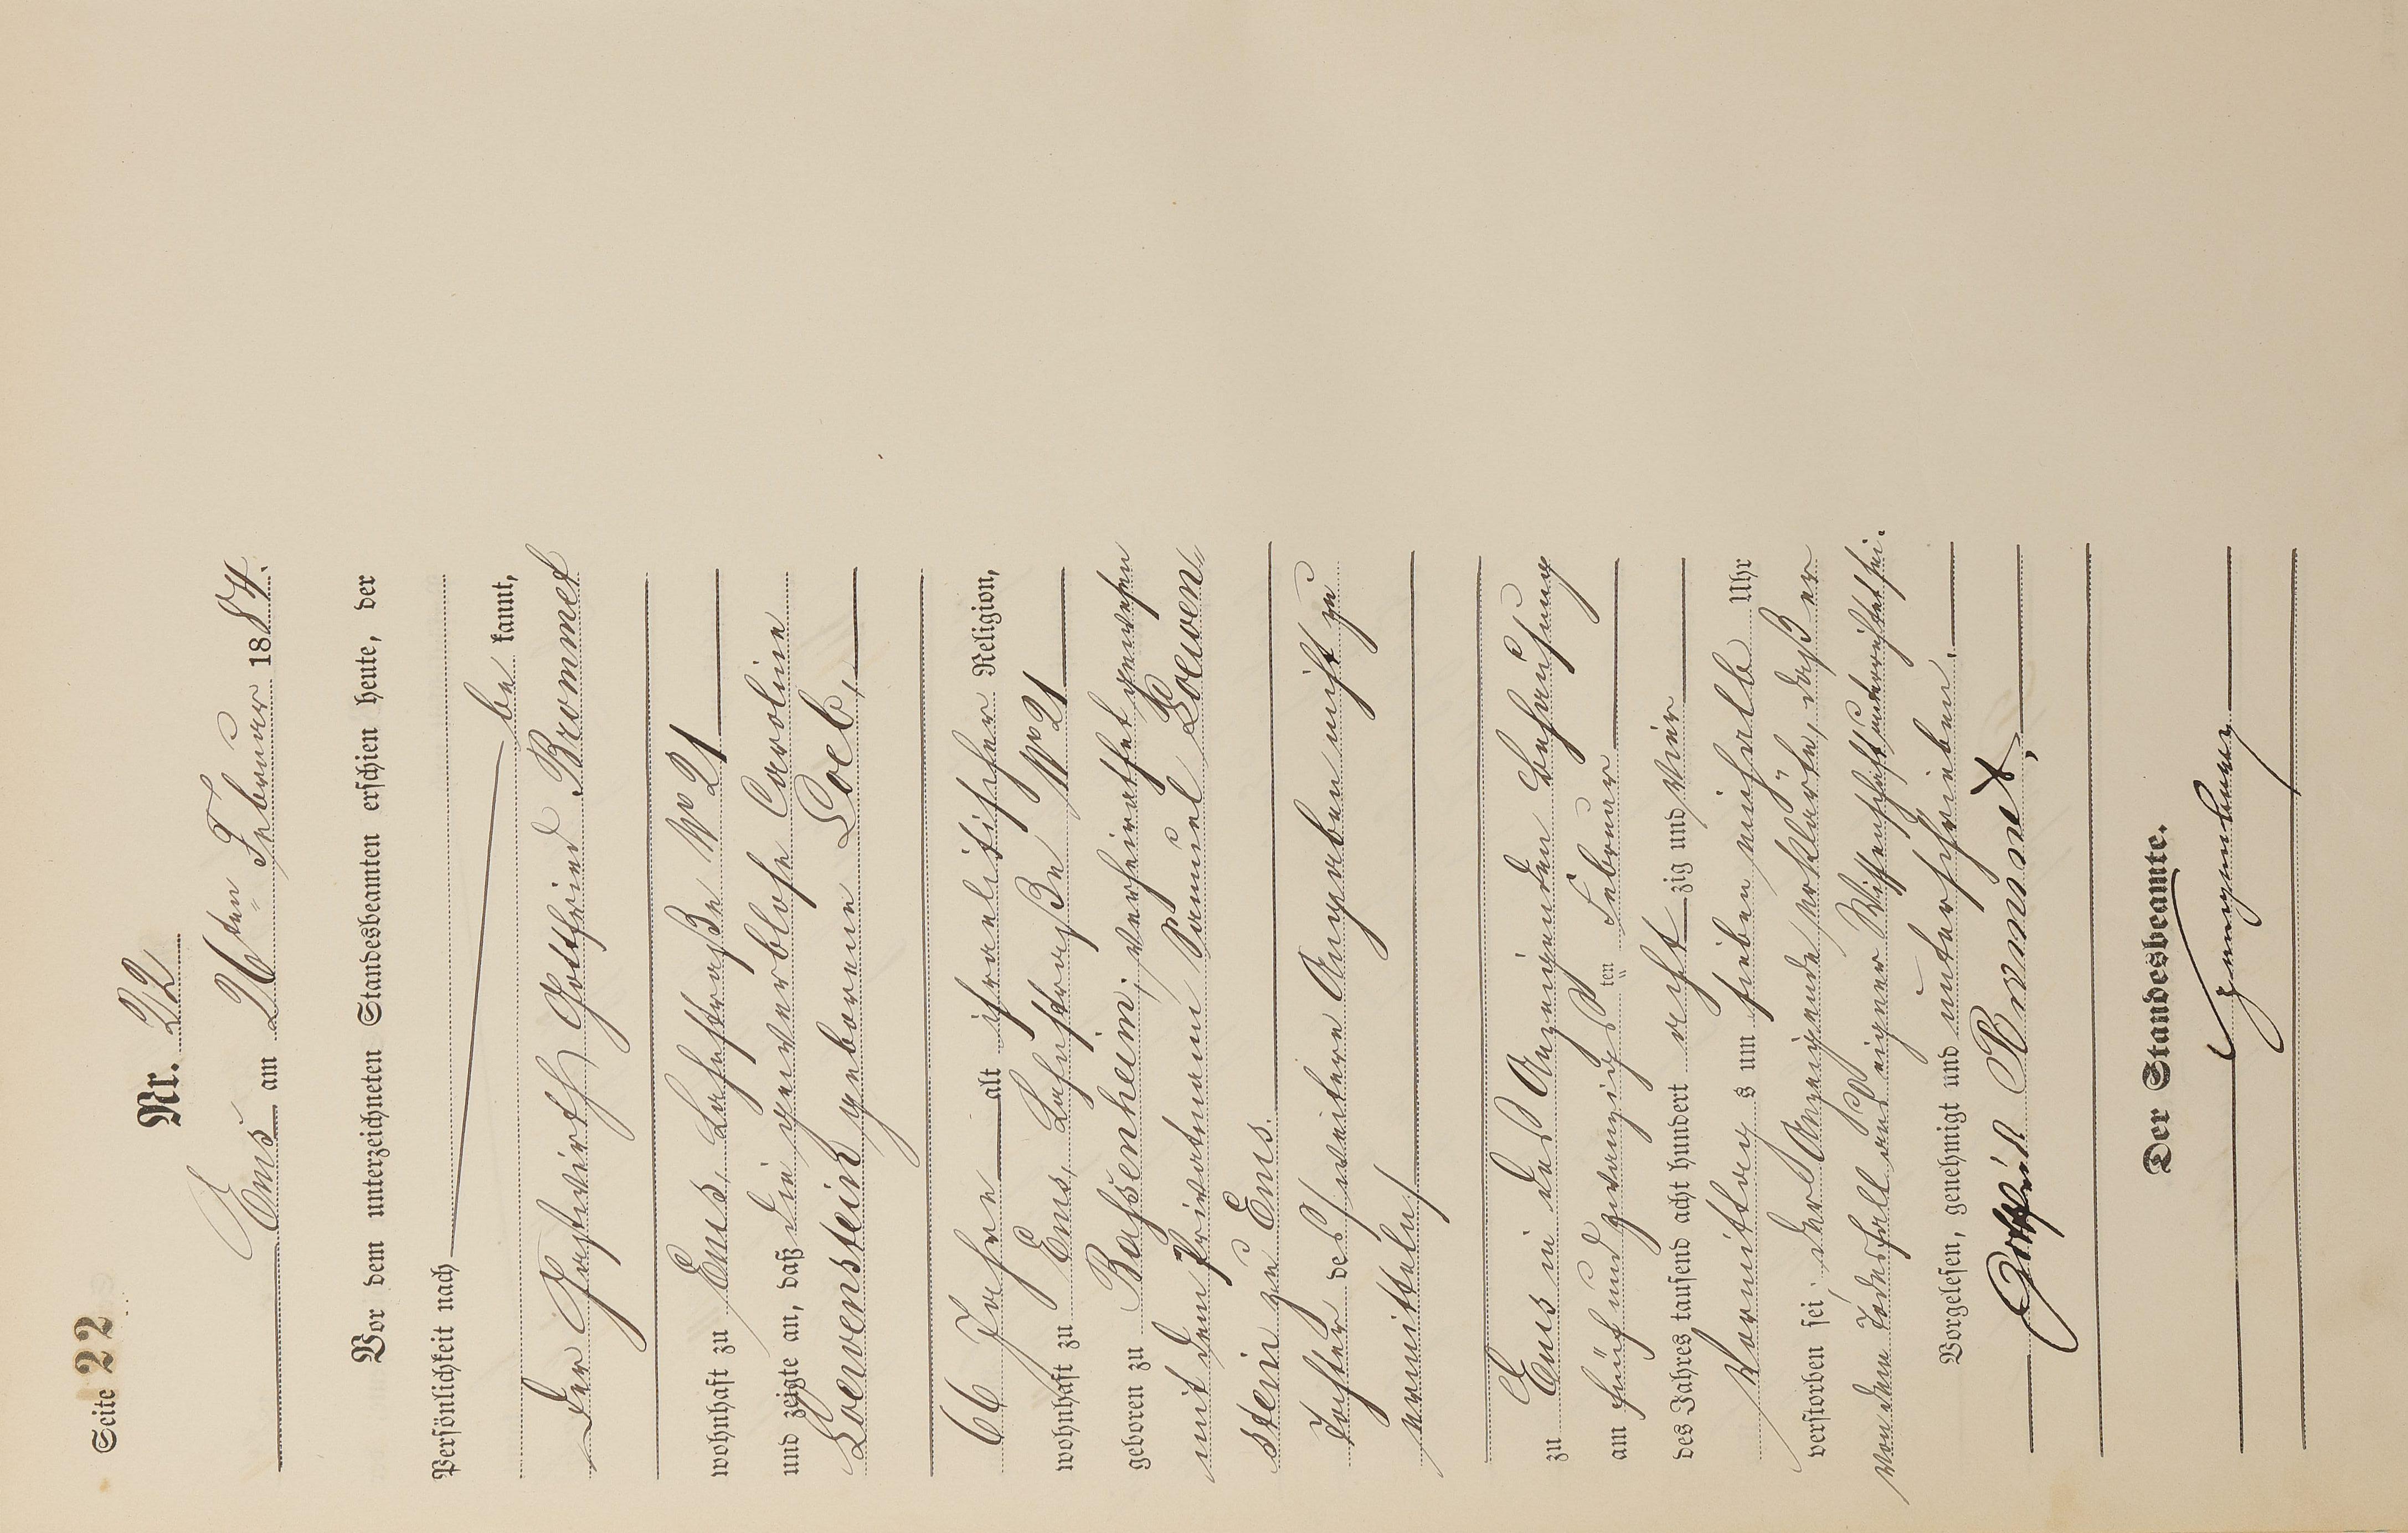 Seite 22
Nr. 22
Ems am 26ten Februar 1884.
Vor dem unterzeichneten Standesbeamten erschien heute, der
Persönlichkeit nach
be kannt,
der Gastwirth Gottfried Brommet
wohnhaft zu Ems, Lahnstraße No 21
und zeigte an, daß die gewerblose Caroline
Loewenstein geborene Loeb,
66 Jahre alt israelitischer Religion,
wohnhaft zu Ems, Lahnstraße No 21
geboren zu Bassenheim; verheirathet gewesen
mit dem Privatmann Samuel Loewen
stein zu Ems.
Tochter des /weitere Angaben nicht zu
ermitteln/
zu Ems in des Anzeigenden Behausung
am fünf und zwanzigsten Februar
des Jahres tausend acht hundert acht zig und vier
Vormittags um sieben einhalb Uhr
verstorben sei; der Anzeigende erklärte, daß er
von dem Todesfall aus eigener Wissenschaft unterrichtet sei.
Vorgelesen, genehmigt und unterschrieben.
Gottfried Brommet,
Der Standesbeamte.